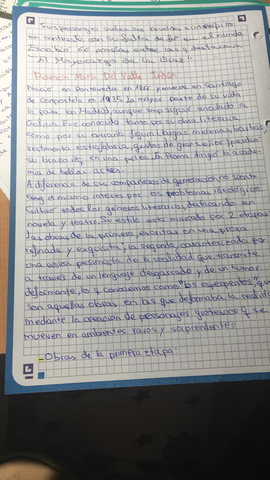 Sus personajes suelen ser
en contraste con la falta de fe en el mundo
Escribió 30 novelas entre las q destacan
"El Mayorazgo de la Braz"
Ramón María Del Valle Inclán
Nació en Pontevedra en 1866 y muere en Santiago
de Compostela en 1935. La mayor parte de su vida
la pasa en Madrid, aunque siguió vinculado a
Galicia. Fue conocido tanto por su obra literaria
como por su extraña figura: largas melenas, barbas,
vestimenta estrafalaria, gustos de gran señor (perdió
su brazo izq en una pelea). En Roma dirigió la acade-
mia de bellas artes.
A diferencia de sus compañeros de generación no sintió
el mismo interés por los problemas ideológicos.
Cultivó todos los géneros literarios, destacando en
novela y teatro. Su estilo está marcado por 2 etapas
las obras de la primera, escritas en una prosa
refinada y exquisita, la segunda, caracterizada por
una visión personal de la realidad que transmite
a través de un lenguaje desgarrado y de un humor
deformante, lo q conocemos como "los esperpentos", que
son aquellas obras en las que deformaba la realidad
mediante la creación de personajes grotescos q se
mueven en ambientes raros y sorprendentes.
- Obras de la primera etapa: